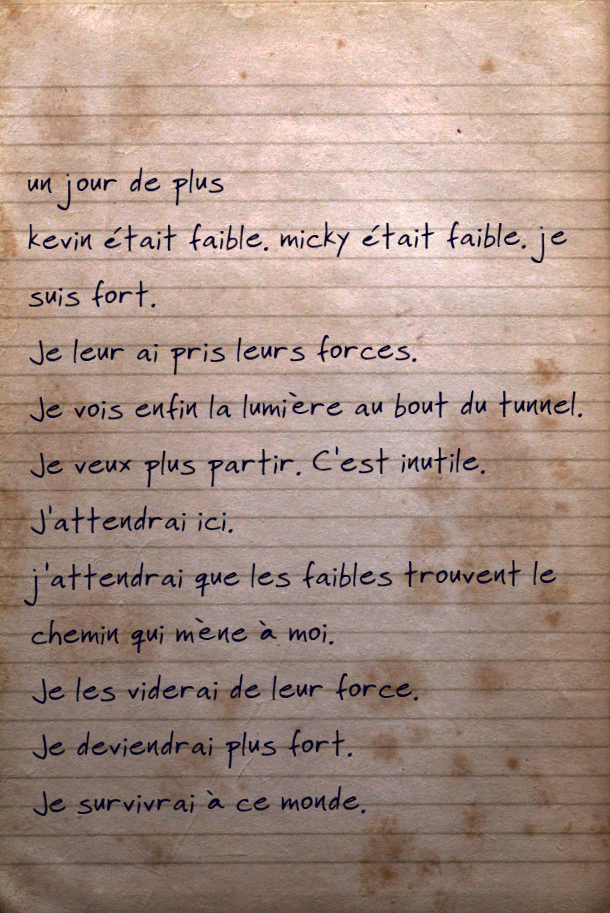 un jour de plus
kevin était faible. micky était faible. je
suis fort.
Je leur ai pris leurs forces.
Je vois enfin la lumière au bout du tunnel.
Je veux plus partir. C'est inutile.
J'attendrai ici.
j'attendrai que les faibles trouvent le
chemin qui mène à moi.
Je les viderai de leur force.
Je deviendrai plus fort.
Je survivrai à ce monde.